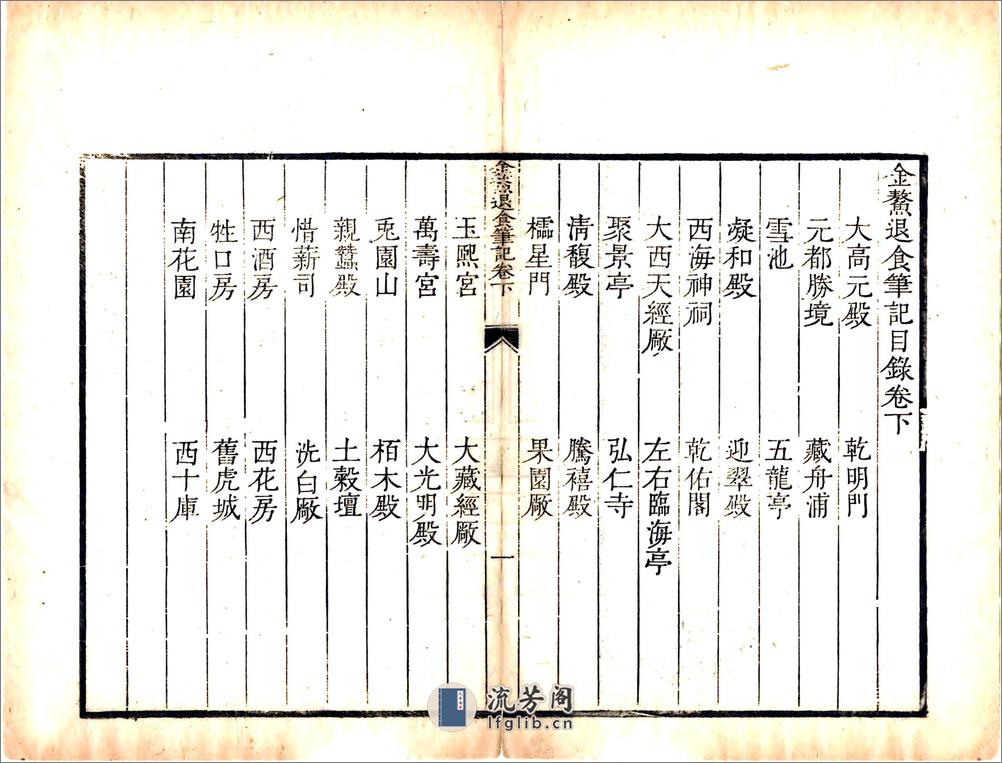 金鰲退食筆記目錄卷下
大高元殿 乾明門
元都勝境 藏舟浦
雪池 五龍亭
凝和殿 迎翠殿
西海神祠 乾佑閣
大西天經厰 左右臨海亭
聚景亭 弘仁寺
清馥殿 騰禧殿
櫺星門 果園厰
金鰲退食筆記卷下 一
玉熙宮 大藏經厰
萬壽宮 大光明殿
兎園山 栢木殿
親蠶殿 土穀壇
惜薪司 洗白厰
西酒房 西花房
牲口房 舊虎城
南花園 西十庫
流芳阁
lfglib.cn